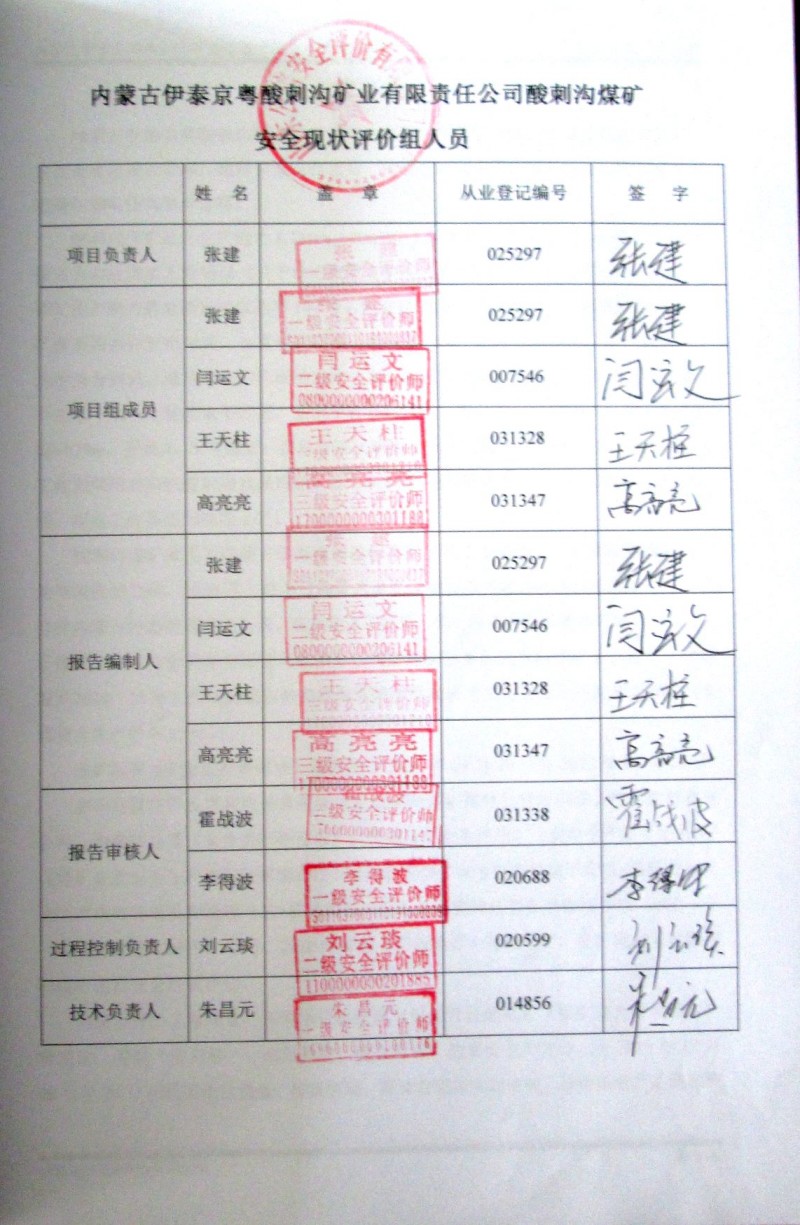 安全评价有
内蒙古伊泰京粤酸刺沟矿业有限责任公司酸刺沟煤矿
安全现状评价组人员
姓 名 盖 章 从业登记编号 签 字
项目负责人 张建 张建 一级安全评价师 025297 张建
项目组成员
张建 张建 一级安全评价师 025297 张建
闫运文 闫运文 二级安全评价师 0800000000206141 007546 闫运文
王天柱 王天柱 三级安全评价师 031328 王天柱
高亮亮 高亮亮 三级安全评价师 1700000000301188 031347 高亮亮
报告编制人
张建 张建 一级安全评价师 025297 张建
闫运文 闫运文 二级安全评价师 0800000000206141 007546 闫运文
王天柱 王天柱 三级安全评价师 031328 王天柱
高亮亮 高亮亮 三级安全评价师 1700000000301188 031347 高亮亮
报告审核人
霍战波 霍战波 二级安全评价师 031338 霍战波
李得波 李得波 一级安全评价师 020688 李得波
过程控制负责人 刘云琰 刘云琰 二级安全评价师 1100000000201885 020599 刘云琰
技术负责人 朱昌元 朱昌元 一级安全评价师 014856 朱昌元